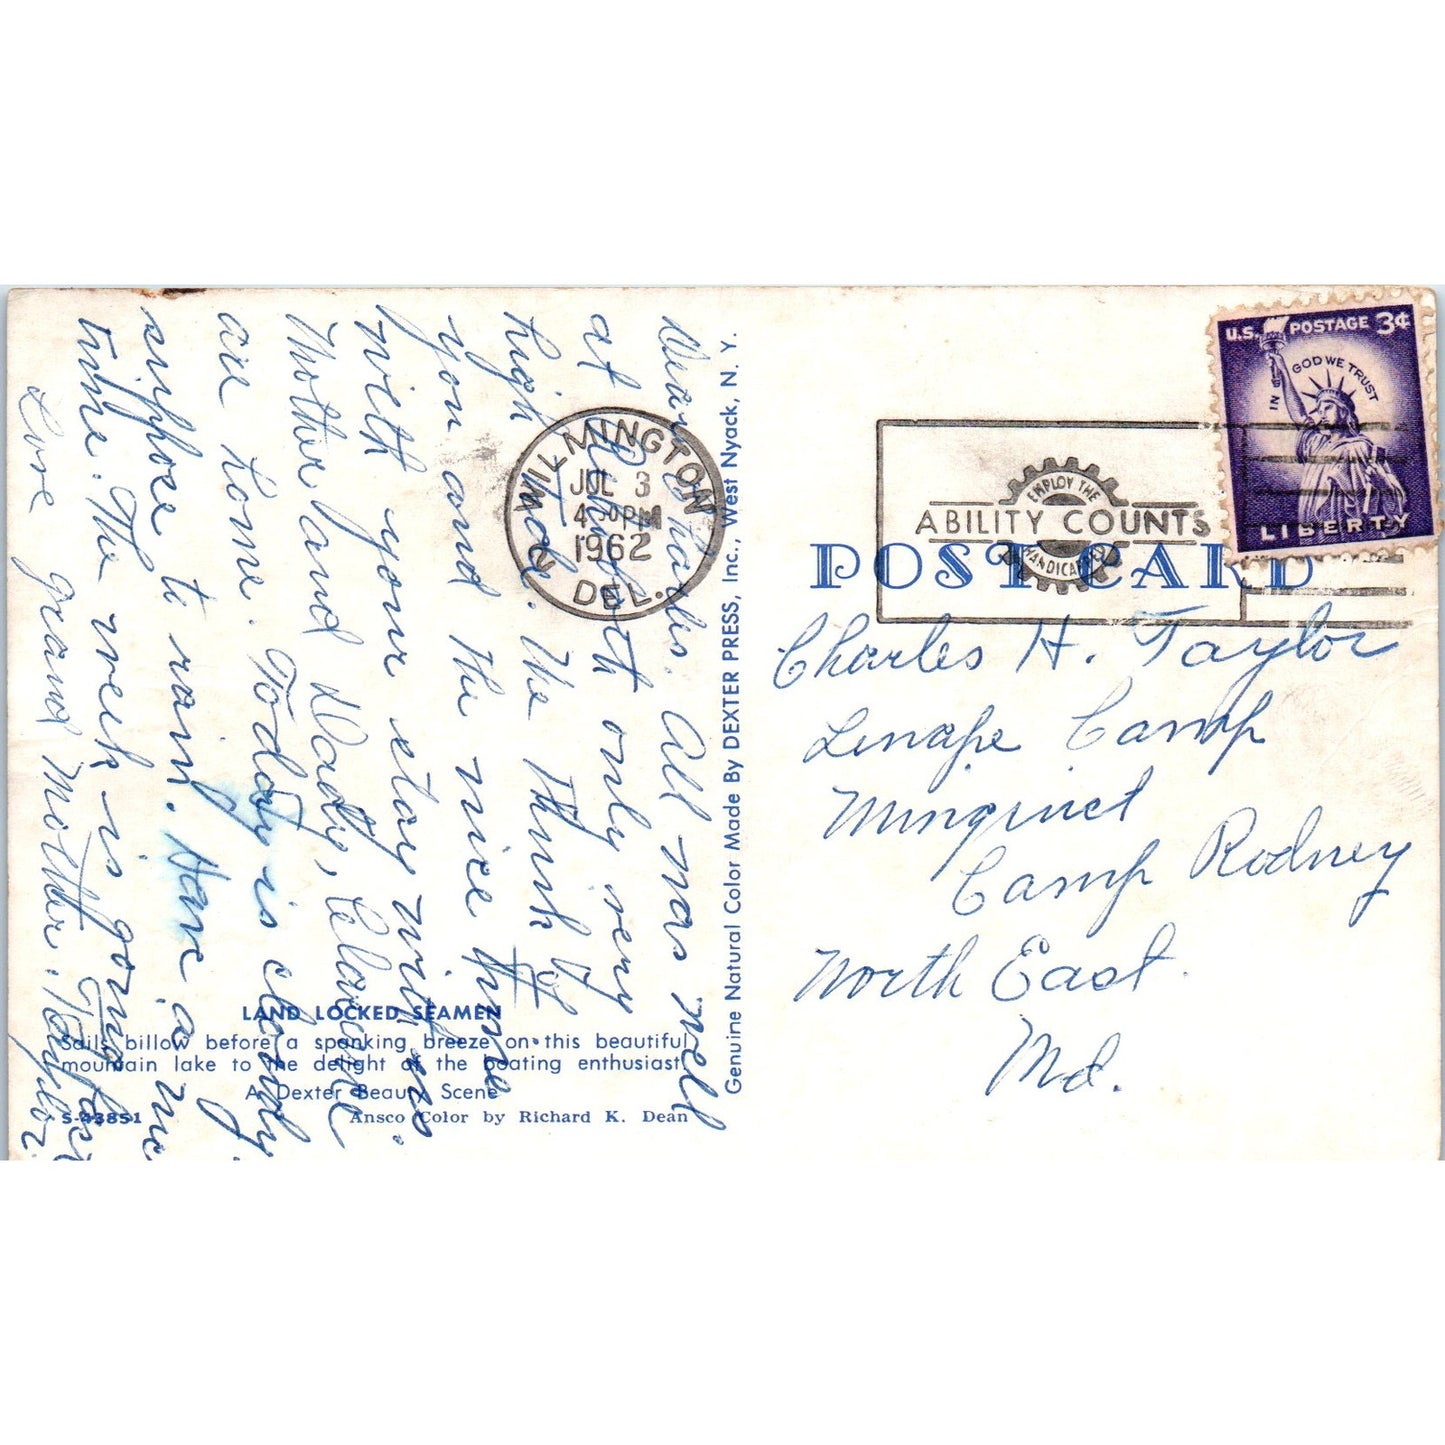 Dear Charles. All was well
at only very
high tide. We think of
you and the nice time
with your stay with us.
Mother and Daddy, Claire
are home. Today is cloudy
suppose to rain. Have a nice
time. The week is going fast
Love grand Mother. Taylor.
WILMINGTON
JUL 3
4 30 PM
1962
2 DEL.
LAND LOCKED SEAMEN
Sails billow before a spanking breeze on this beautiful
mountain lake to the delight of the boating enthusiast.
A Dexter Beauty Scene
S-43851 Ansco Color by Richard K. Dean
Genuine Natural Color Made By DEXTER PRESS, Inc., West Nyack, N. Y.
U.S. POSTAGE 3¢
IN GOD WE TRUST
LIBERTY
EMPLOY THE
ABILITY COUNTS
HANDICAPPED
POST CARD
Charles H. Taylor
Lenape Camp
Minquict
Camp Rodney
North East.
Md.